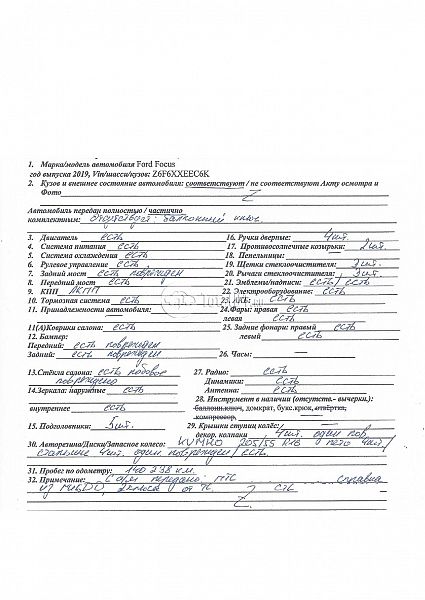 1. Марка/модель автомобиля Ford Focus
год выпуска 2019, Vin/шасси/кузов: Z6F6XXEEC6K
2. Кузов и внешнее состояние автомобиля: соответствуют / не соответствуют Акту осмотра и
Фото Z
Автомобиль передан полностью / частично
комплектным: отсутствует баллонный ключ
3. Двигатель есть
4. Система питания есть
5. Система охлаждения есть
6. Рулевое управление есть
7. Задний мост есть поврежден
8. Передний мост есть
9. КПП АКПП
10. Тормозная система есть
11. Принадлежности автомобиля:
11(А)Коврики салона: есть
12. Бампер:
Передний: есть поврежден
Задний: есть поврежден
13.Стёкла салона: есть лобовое
повреждено
14.Зеркала: наружные есть
внутреннее есть
15. Подголовники: 5шт.
16. Ручки дверные: 4шт.
17. Противосолнечные козырьки: 2шт
18. Пепельницы: —
19. Щетки стеклоочистителя: 3шт.
20. Рычаги стеклоочистителя: 3шт.
21. Эмблемы/надписи: есть/есть
22. Электрооборудование: есть
23. АКБ: есть
24.Фары: правая есть
левая есть
25. Задние фонари: правый
есть левый есть
26. Часы: —
27. Радио: есть
Динамики: есть
Антенна: есть
28. Инструмент в наличии (отсутств.- вычерки.):
баллонн.ключ, домкрат, букс.крюк, отвёртка,
компрессор.
29. Крышки ступиц колёс: —
декор. колпаки 4шт. один пов.
30. Авторезина/Диски/Запасное колесо: KUMHO 205/55 R16 лето 4шт/
стальные 4шт. один поврежден/есть
31. Пробег по одометру: 140 238 км.
32. Примечание: С а/м передано ПТС справка
из МЦБДО, СТС
Z